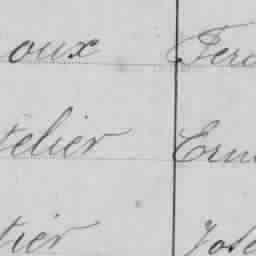 oux Ferd
telier Ern
tier José